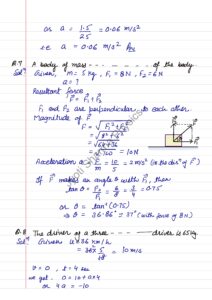 or a = 1.5/25 = 0.06 m/s²
i.e a = 0.06 m/s² Ans
Q.7 A body of mass - - - - - - - - of the body
Solⁿ Given, m = 5 kg, F₁ = 8N, F₂ = 6N
a = ?
Resultant force
F = F₁ + F₂
F₁ and F₂ are perpendicular to each other.
Magnitude of F
F = √F₁² + F₂²
= √8² + 6²
= √64 + 36
= √100 = 10N
Acceleration a = F/m = 10/5 = 2 m/s² (in the dirⁿ of F)
If F makes an angle θ with F₁, then
tan θ = F₂/F₁ = 6/8 = 3/4 = 0.75
or θ = tan⁻¹ (0.75)
⇒ θ = 36.86° ≈ 37° (with force of 8N)
Q.8 The driver of a three - - - - - driver is 65 kg.
Solⁿ Given u = 36 km/h
= 36 × 5/18 = 10 m/s
v = 0, t = 4 sec
we get 0 = 10 + a×4
or 4a = -10